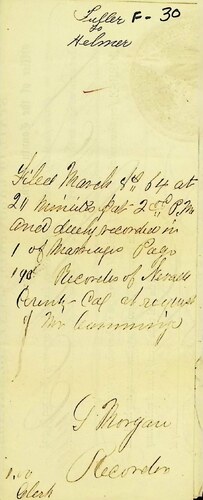 Fuller F - 30
to
Helmer
Filed March 8th 64 at
20 minutes past 2 oc P.M
and duely recorded in
1 of Marriages Page
190 Records of Nevada
County Cal at request
of Mr Cummings
Morgan
Recorder
1.00
Clerk